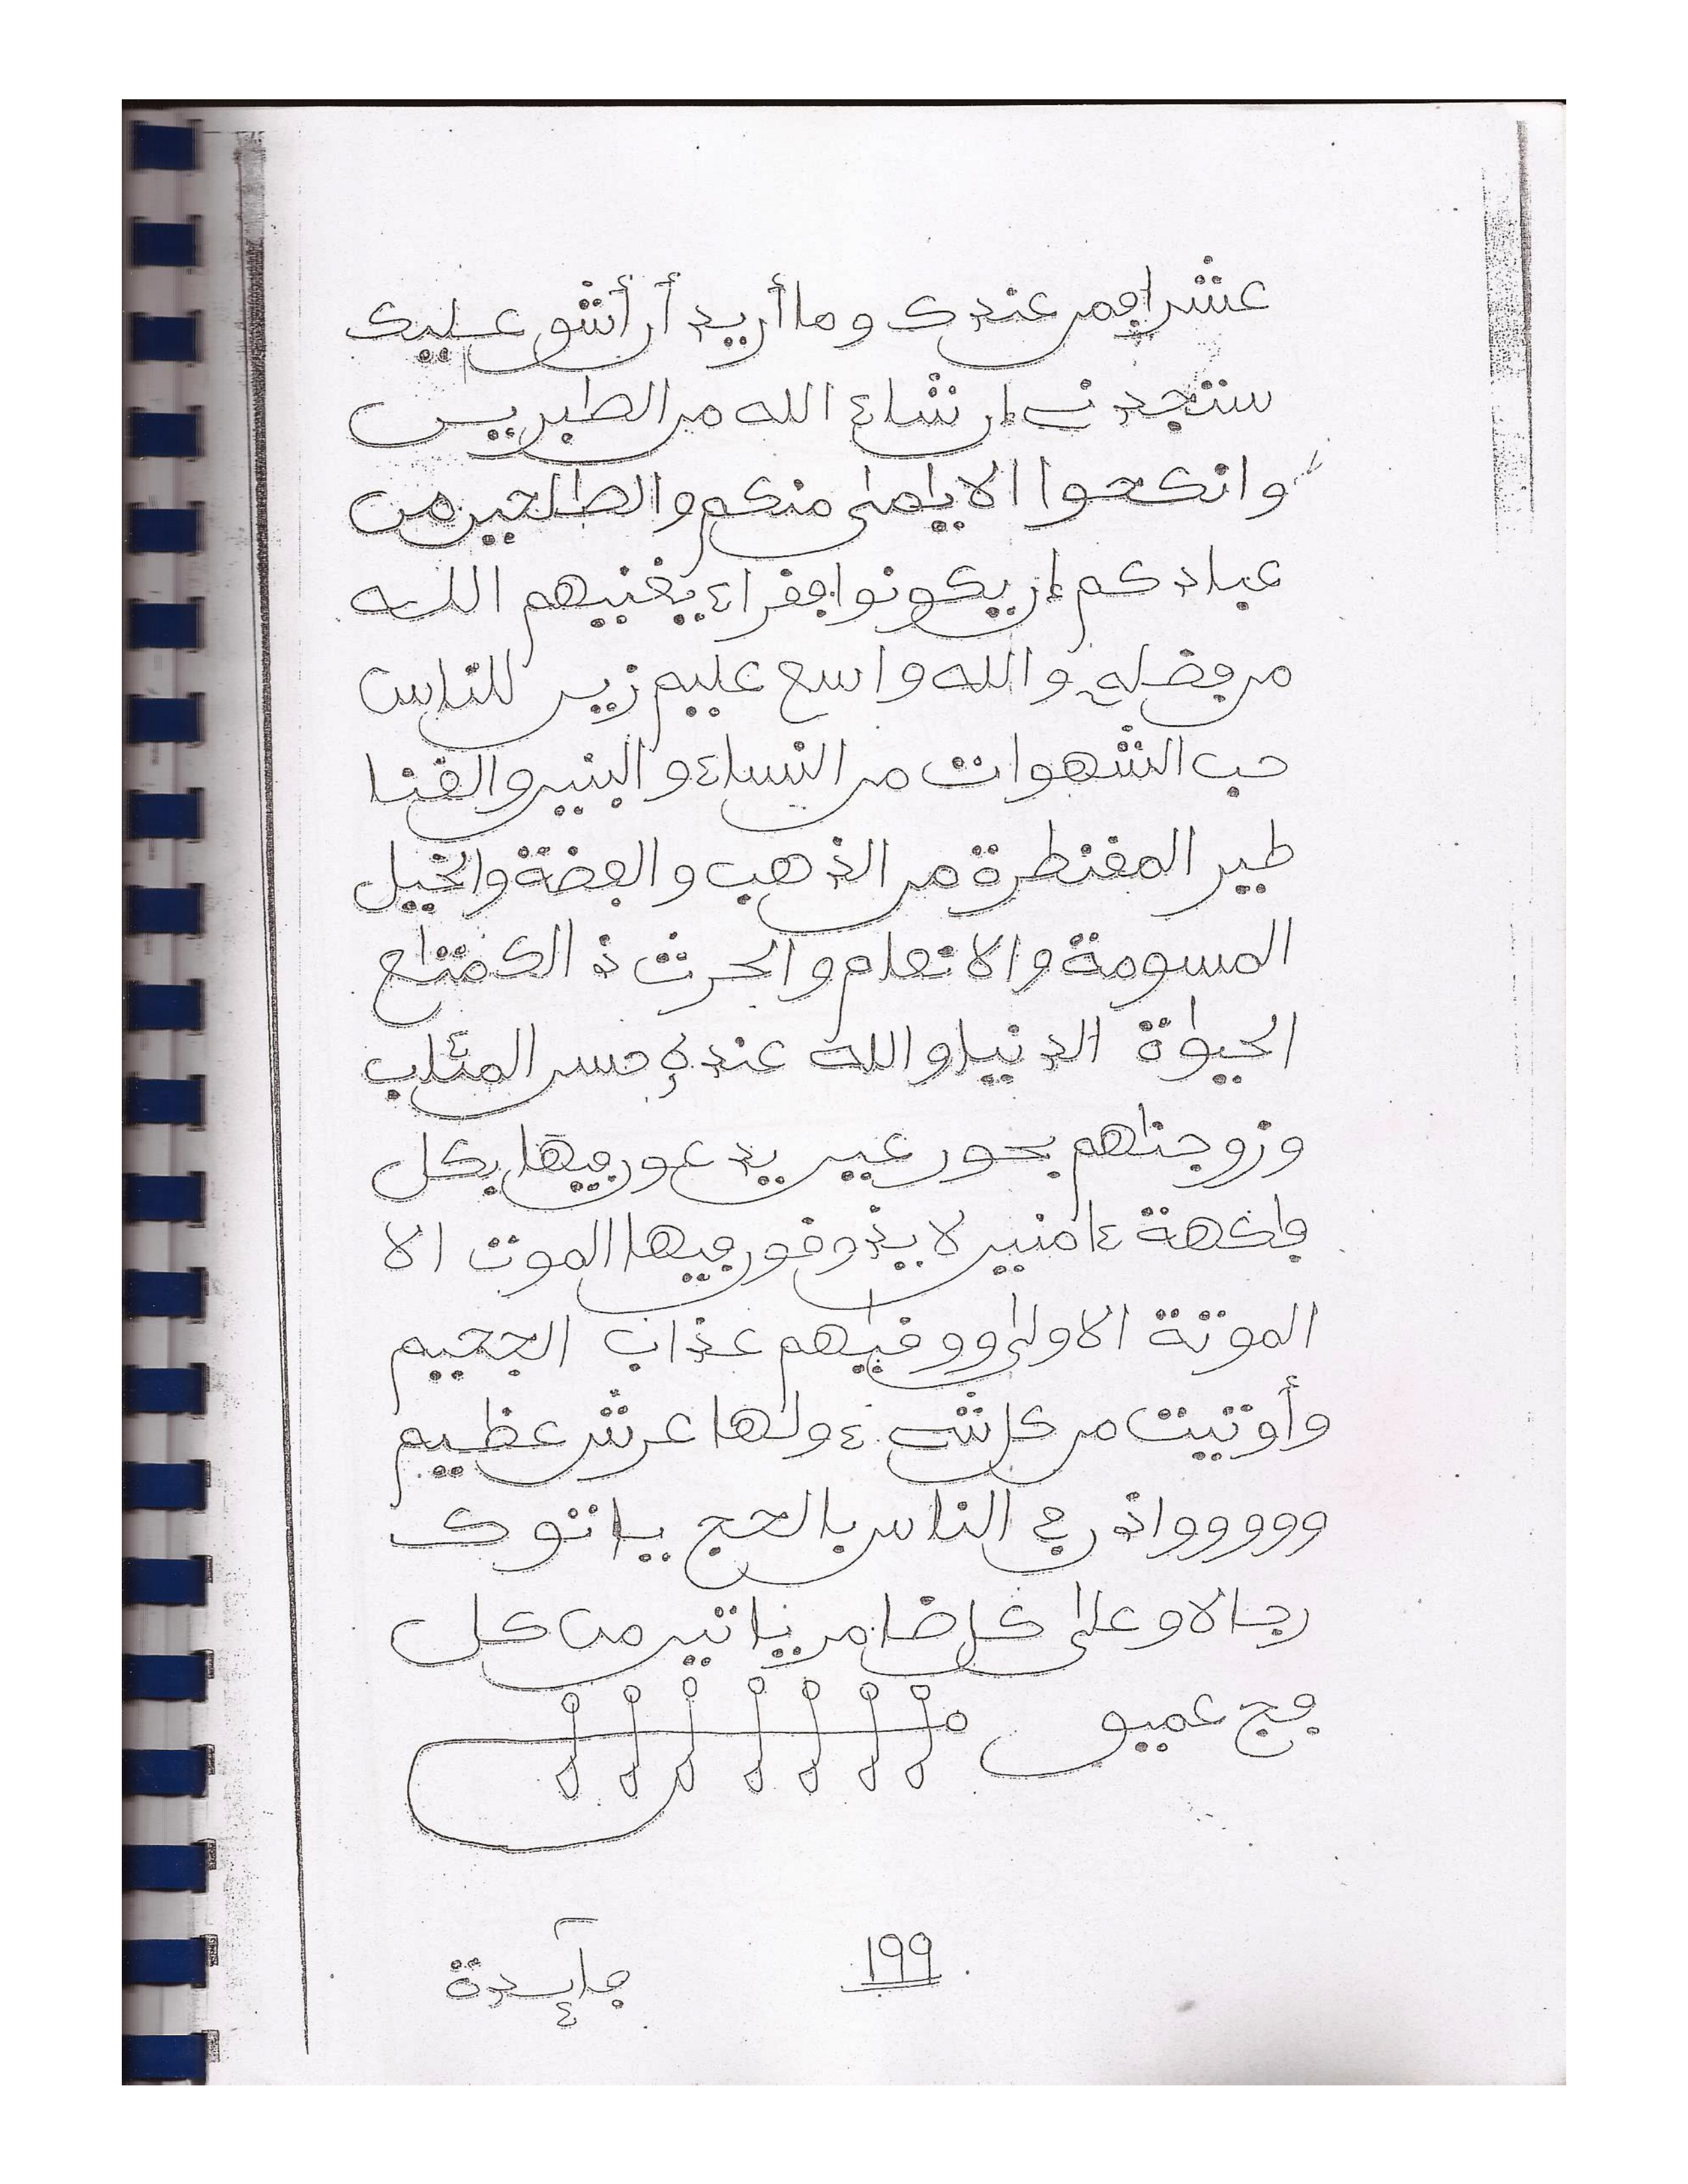 عشرا فمن عندك وما أريد أن أشق عليك
ستجدني إن شاء الله من الصبرين
وانكحوا الايمى منكم والصلحين من
عبادكم إن يكونوا فقراء يغنيهم الله
من فضله والله واسع عليم زين للناس
حب الشهوات من النساء والبنين والقنا
طير المقنطرة من الذهب والفضة والخيل
المسومة والانعام والحرث ذالك متاع
الحيوة الدنيا والله عنده حسن المئاب
وزوجناهم بحور عين يدعون فيها بكل
فكهة ءامنين لا يذوقون فيها الموت الا
الموتة الاولى ووقيهم عذاب الجحيم
وأوتيت من كل شيء ولها عرش عظيم
وووووواذن في الناس بالحج ياتوك
رجالا وعلى كل ضامر ياتين من كل
فج عميق
١٩٩
فآئدة